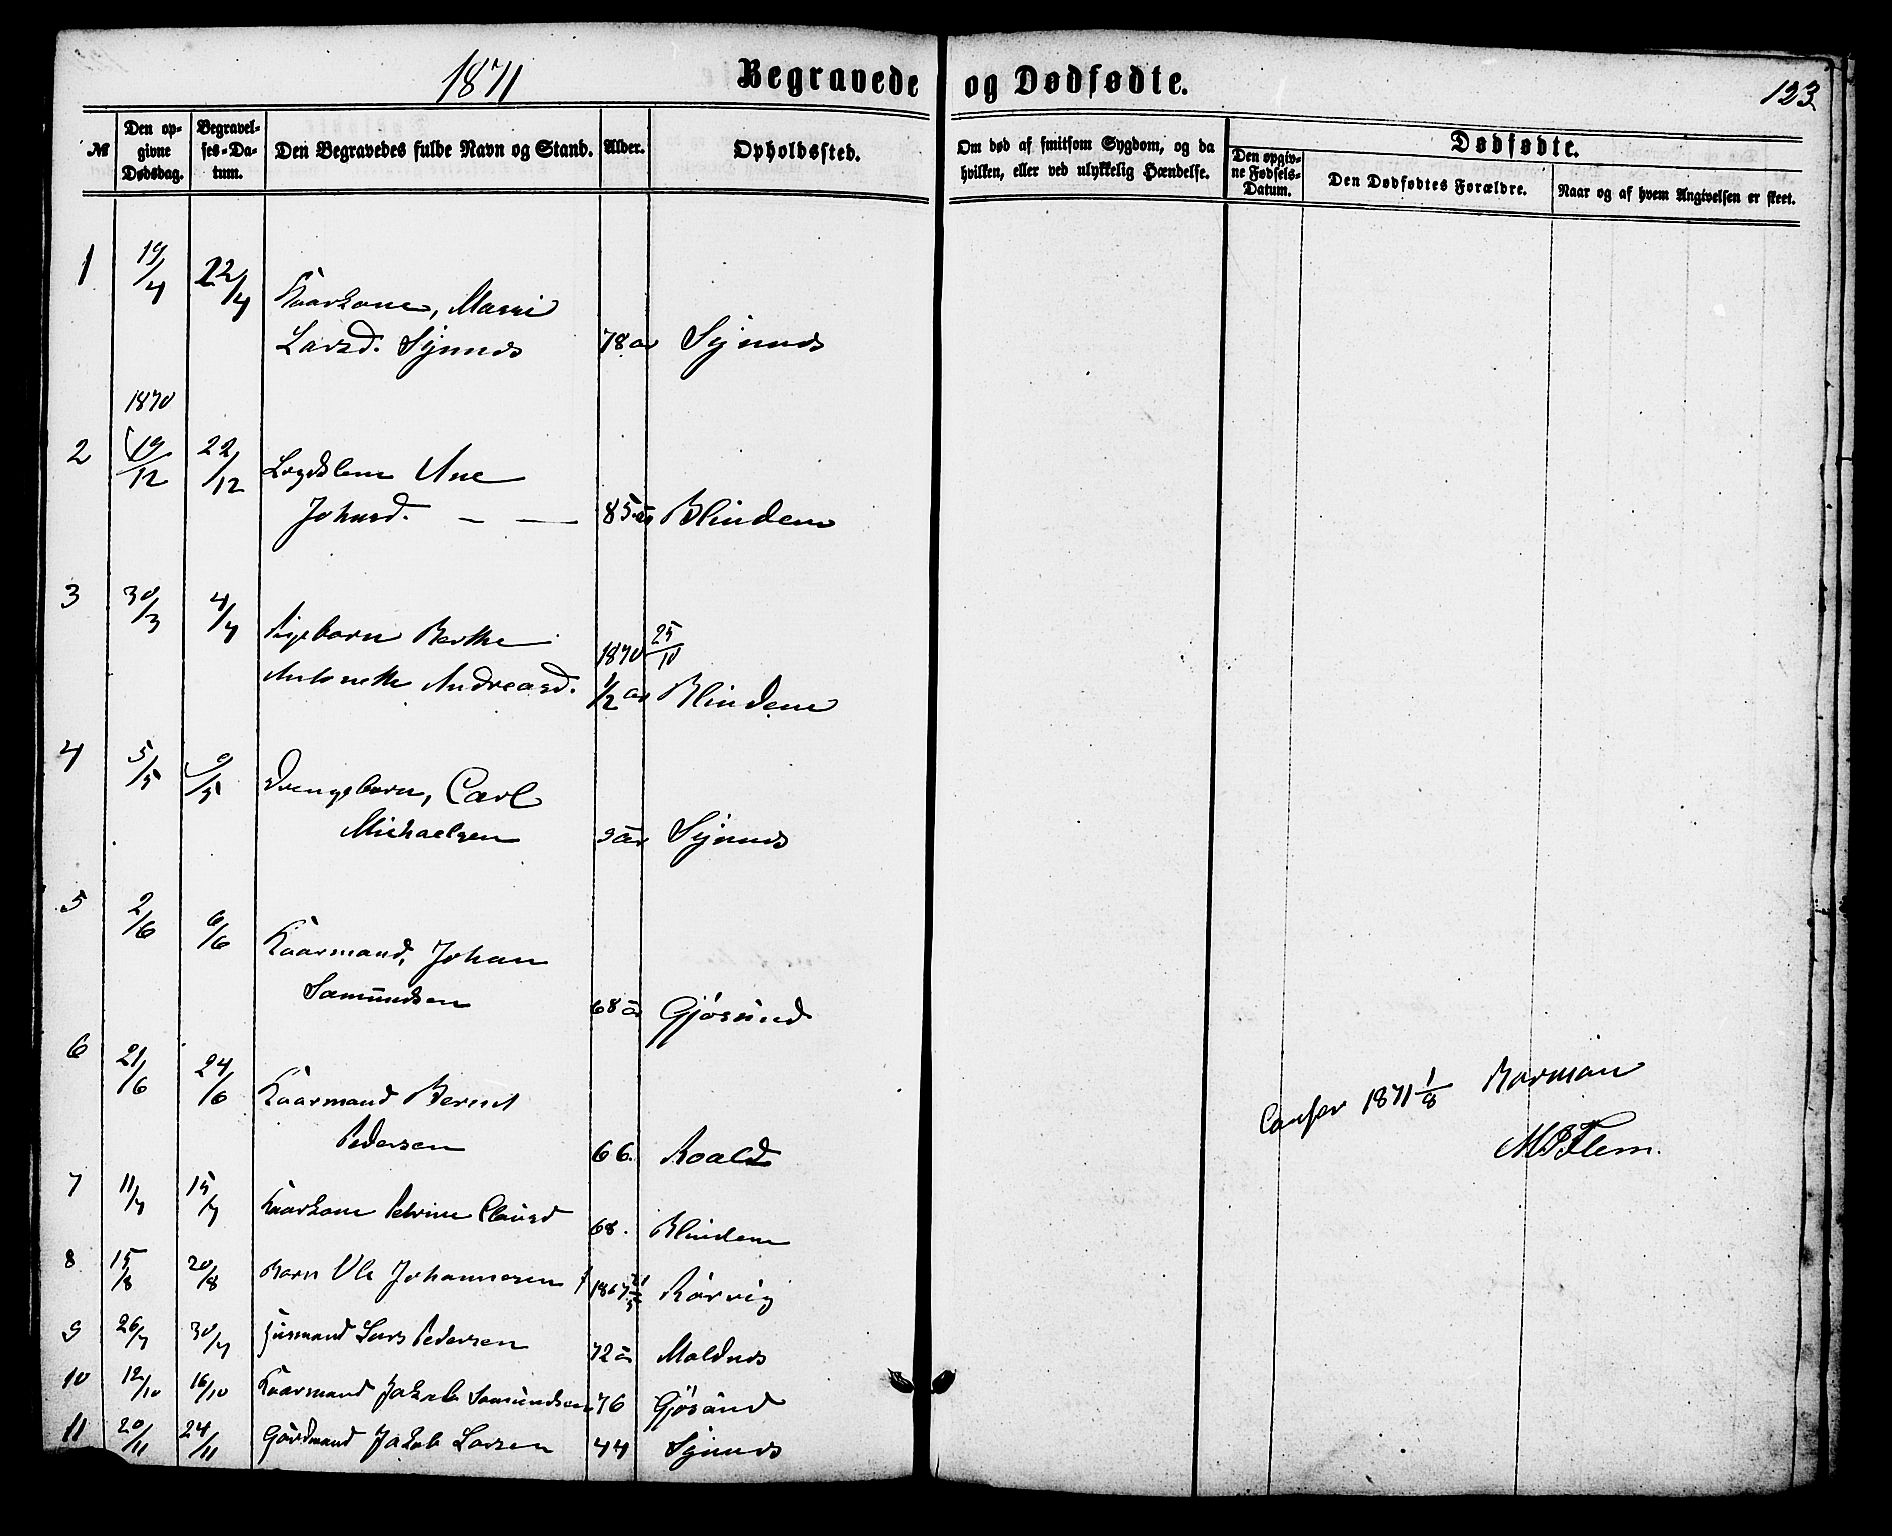 1871 Begravede og Dødfødte. 123
№ Den opgivne Dødsdag. Begravelses-Datum. Den Begravedes fulde Navn og Stand. Alder. Opholdssted. Om død af smitsom Sygdom, og da hvilken, eller ved ulykkelig Hændelse. Dødfødte. Den opgivne Fødsels-Datum. Den Dødfødtes Forældre. Naar og af hvem Angivelsen er skeet.
1 19/4 22/4 Kaarkone, Massi
Larsd. Synnes 78 aar Synnes
1870
2 19/12 22/12 Lægdslem Ane
Johnsd. — — 85 aar Blindem
3 30/3 4/4 Pigebarn Berthe 1870 25/10
Antonette Andreasd. 1/2 aar Blindem
4 5/5 9/5 Drengebarn, Carl
Michaelsen 9 aar Synnes
5 2/6 6/6 Kaarmand, Johan
Samundsen 68 aar Gjøsund
6 21/6 24/6 Kaarmand Bernt
Pedersen 66. Roald
7 11/7 15/7 Kaarkone Petrine Clausd 68. Blindem
8 15/8 20/8 Barn Ole Johannesen f 1867 21/5 Rørvig
9 26/7 30/7 Husmand Lars Pedersen 72 aar Moldnes
10 12/10 16/10 Kaarmand Jakob Samundsen 76 Gjøsund
11 20/11 24/11 Gårdmand Jakob Larsen 44 Synnes
Confer 1871 1/8 Norman
M Flem.